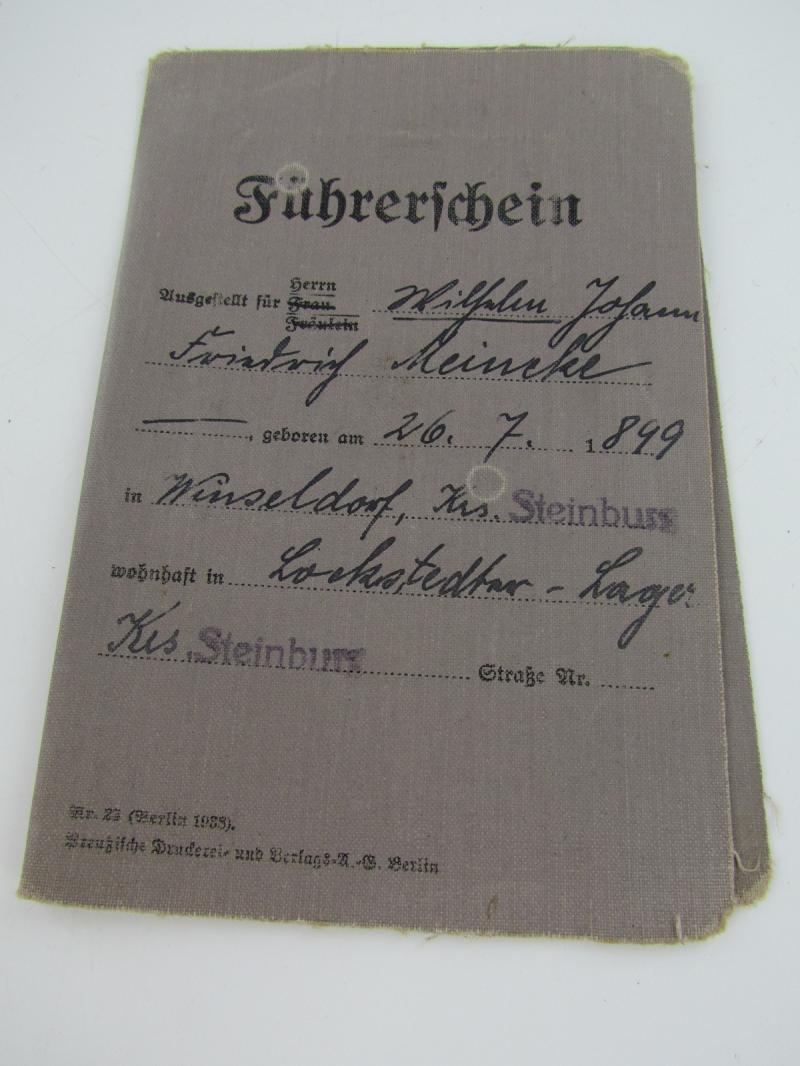 Führerschein
Ausgestellt für Herrn Frau Fräulein Wilhelm Johann
Friedrich Meincke
, geboren am 26. 7. 1899
in Winseldorf, Krs. Steinburg
wohnhaft in Lockstedter-Lager
Krs. Steinburg Straße Nr.
(Berlin 1933).
Preußische Druckerei- und Verlags-A.-G. Berlin